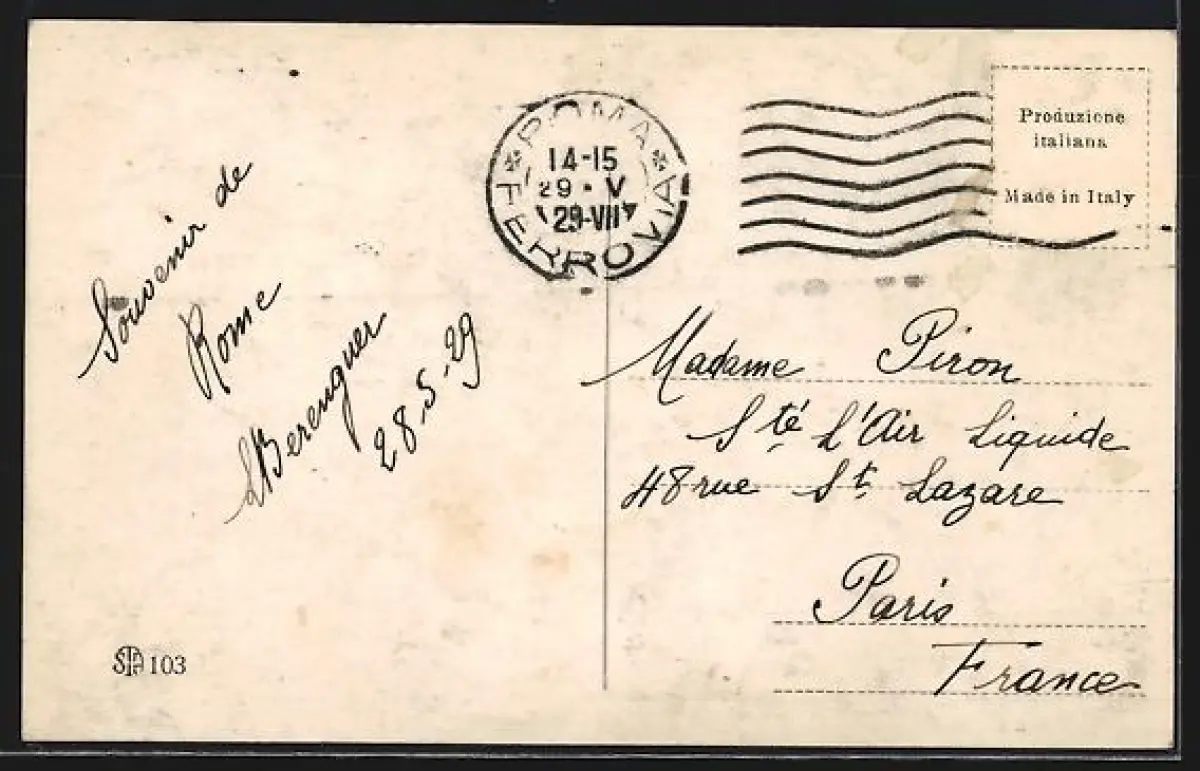 Souvenir de
Rome
LBerenguer
28-5-29
103
ROMA
14-15
29 · V
29-VII
FERROVIA
Produzione
italiana
Made in Italy
Madame Piron
Sté L'Air Liquide
48 rue St. Lazare
Paris
France